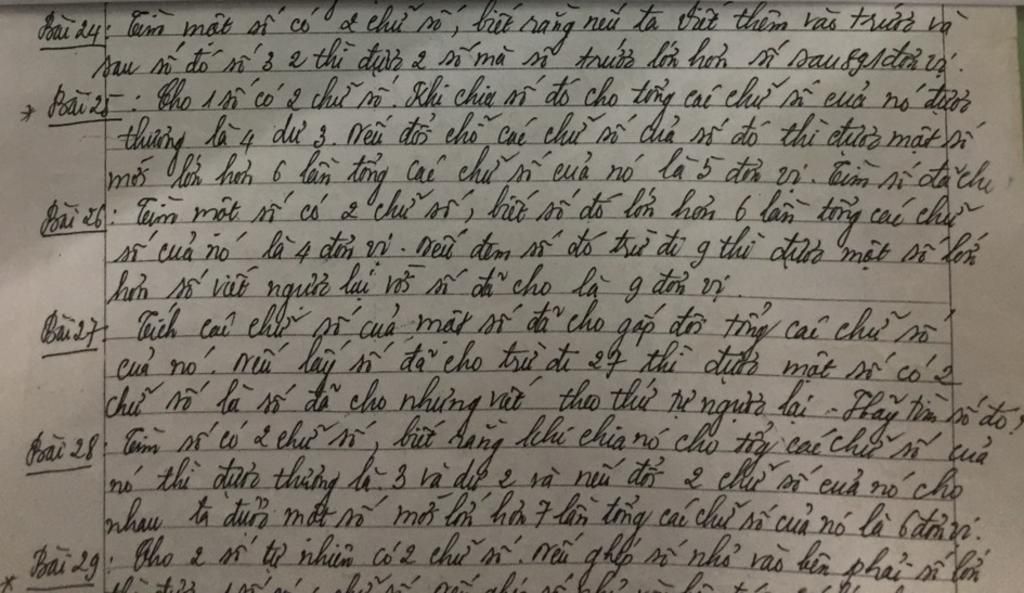 Bài 24: Tìm một số có 2 chữ số, biết rằng nếu ta viết thêm vào trước và
sau số đó số 3 2 thì được 2 số mà số trước lớn hơn số sau 891 đơn vị.
* Bài 25: Cho 1 số có 2 chữ số. Khi chia số đó cho tổng các chữ số của nó được
thương là 4 dư 3. Nếu đổi chỗ các chữ số của số đó thì được một số
mới lớn hơn 6 lần tổng các chữ số của nó là 5 đơn vị. Tìm số đã cho
Bài 26: Tìm một số có 2 chữ số, biết số đó lớn hơn 6 lần tổng các chữ
số của nó là 4 đơn vị. Nếu đem số đó trừ đi 9 thì được một số lớn
hơn số viết ngược lại với số đã cho là 9 đơn vị.
Bài 27: Tích các chữ số của một số đã cho gấp đôi tổng các chữ số
của nó. Nếu lấy số đã cho trừ đi 27 thì được một số có 2
chữ số là số đã cho nhưng viết theo thứ tự ngược lại. Hãy tìm số đó?
Bài 28: Tìm số có 2 chữ số, biết rằng khi chia nó cho tổng các chữ số của
nó thì được thương là 3 và dư 2 và nếu đổi 2 chữ số của nó cho
nhau ta được một số mới lớn hơn 7 lần tổng các chữ số của nó là 6 đơn vị.
* Bài 29: Cho 2 số tự nhiên có 2 chữ số. Nếu ghép số nhỏ vào bên phải số lớn